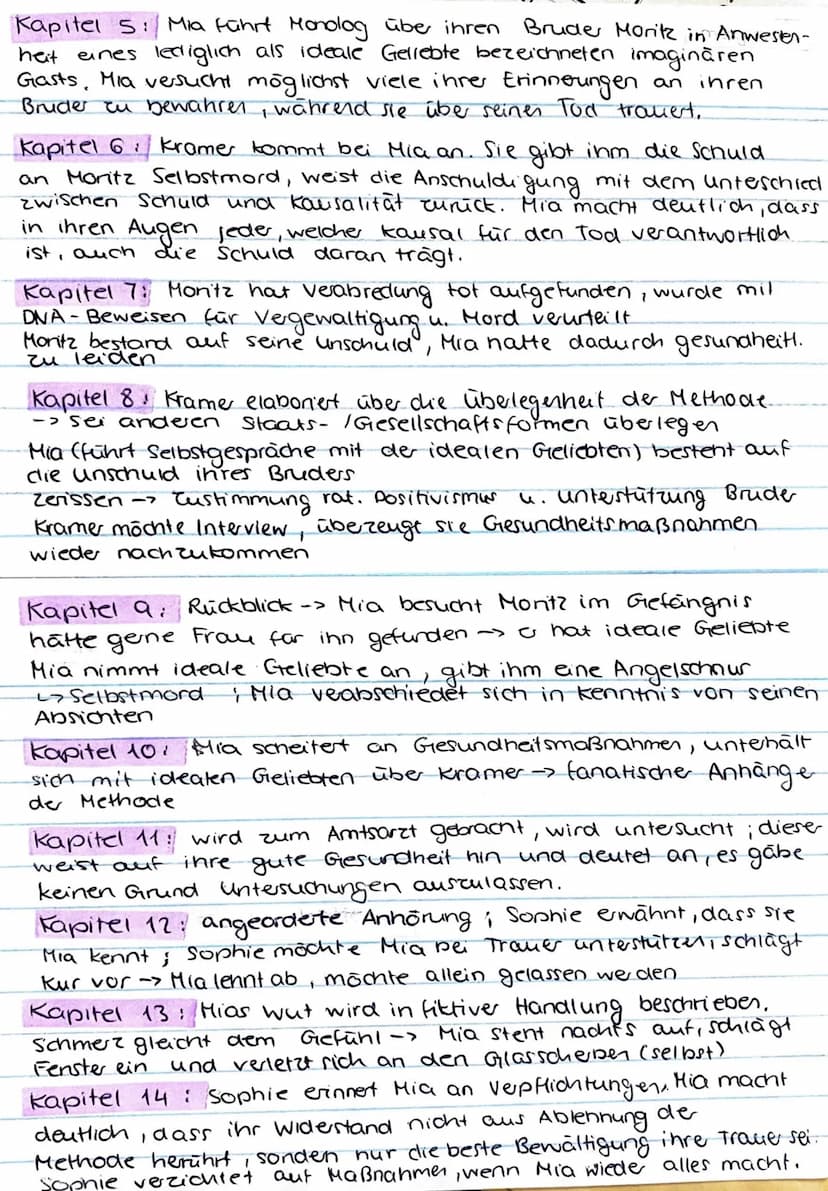 Kapitel 5: Mia führt Monolog über ihren Bruder Moritz in Anwesen-
heit eines lediglich als ideale Geliebte bezeichneten imaginären
Gasts. Mia versucht möglichst viele ihrer Erinnerungen an ihren
Bruder zu bewahren, während sie über seinen Tod trauert.
Kapitel 6: Kramer kommt bei Mia an. Sie gibt ihm die Schuld
an Moritz Selbstmord, weist die Anschuldigung mit dem Unterschied
zwischen Schuld und Kausalität zurück. Mia macht deutlich, dass
in ihren Augen jeder, welcher kausal für den Tod verantwortlich
ist, auch die Schuld daran trägt.
Kapitel 7: Moritz hat Verabredung tot aufgefunden, wurde mit
DNA-Beweisen für Vergewaltigung u. Mord verurteilt
Moritz bestand auf seine Unschuld, Mia hatte dadurch gesundheitl.
zu leiden
Kapitel 8: Kramer elaboriert über die Überlegenheit der Methode
-> Sei anderen Staats- /Gesellschaftsformen überlegen
Mia (führt Selbstgespräche mit der idealen Geliebten) besteht auf
die Unschuld ihres Bruders
zerissen -> Zustimmung rat. Positivismus u. Unterstützung Bruder
Kramer möchte Interview, überzeugt sie Gesundheitsmaßnahmen
wieder nachzukommen
Kapitel 9: Rückblick -> Mia besucht Moritz im Gefängnis
hätte gerne Frau für ihn gefunden -> er hat ideale Geliebte
Mia nimmt ideale Geliebte an, gibt ihm eine Angelschnur
↳ Selbstmord ; Mia verabschiedet sich in Kenntnis von seinen
Absichten
Kapitel 10: Mia scheitert an Gesundheitsmaßnahmen, unterhält
sich mit idealen Geliebten über Kramer -> fanatischer Anhänge
der Methode
Kapitel 11: wird zum Amtsarzt gebracht, wird untersucht ; dieser
weist auf ihre gute Gesundheit hin und deutet an, es gäbe
keinen Grund Untersuchungen auszulassen.
Kapitel 12: angeorderte Anhörung ; Sophie erwähnt, dass sie
Mia kennt ; Sophie möchte Mia bei Trauer unterstützen, schlägt
Kur vor -> Mia lehnt ab, möchte allein gelassen werden
Kapitel 13: Mias Wut wird in fiktiver Handlung beschrieben.
Schmerz gleicht dem Gefühl -> Mia steht nachts auf, schlägt
Fenster ein und verletzt sich an den Glasscheiben (selbst)
Kapitel 14: Sophie erinnet Mia an Verpflichtungen. Mia macht
deutlich, dass ihr Widerstand nicht aus Ablehnung der
Methode herührt, sonden nur die beste Bewältigung ihre Trauer sei.
Sophie verzichtet auf Maßnahmen, wenn Mia wieder alles macht.